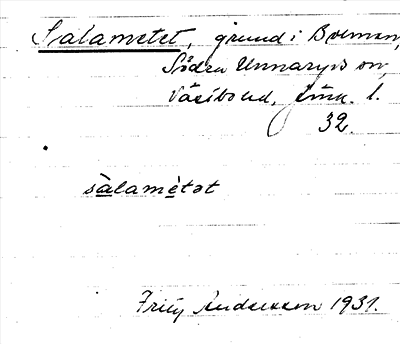 Salametet, grund i Bolmen,
Södra Unnaryds sn,
Västbo hd, Jönk. l.
32.
sàlamètət
Fritz Andersson 1931.